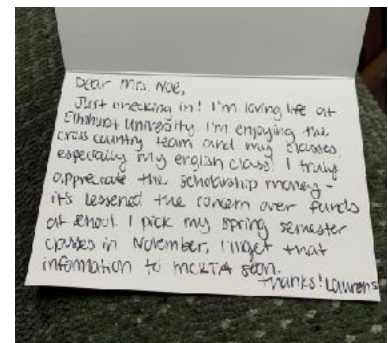 Dear Mrs. Noe,
Just checking in! I'm loving life at
Elmhurst University. I'm enjoying the
cross country team and my classes,
especially my english class! I truly
appreciate the scholarship money -
it's lessened the concern over funds
at school. I pick my spring semester
classes in November, I'll get that
information to MCRTA soon.
Thanks! Lauren